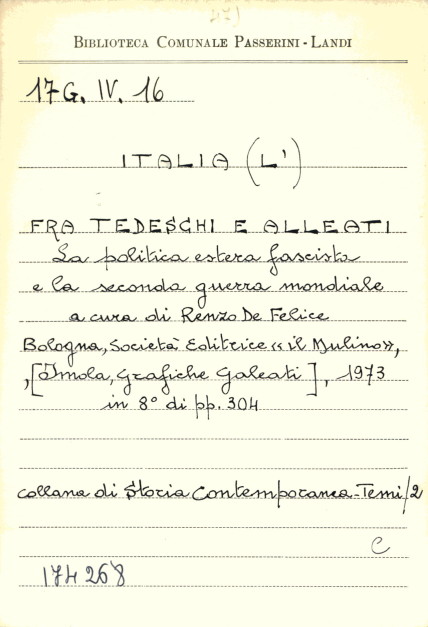 BIBLIOTECA COMUNALE PASSERINI-LANDI
17 G. IV. 16
ITALIA (L')
FRA TEDESCHI E ALLEATI
La politica estera fascista
e la seconda guerra mondiale
a cura di Renzo De Felice
Bologna, Società Editrice «il Mulino»,
,[Imola, Grafiche Galeati], 1973
in 8° di pp. 304
collana di Storia Contemporanea-Temi/2
C
174268